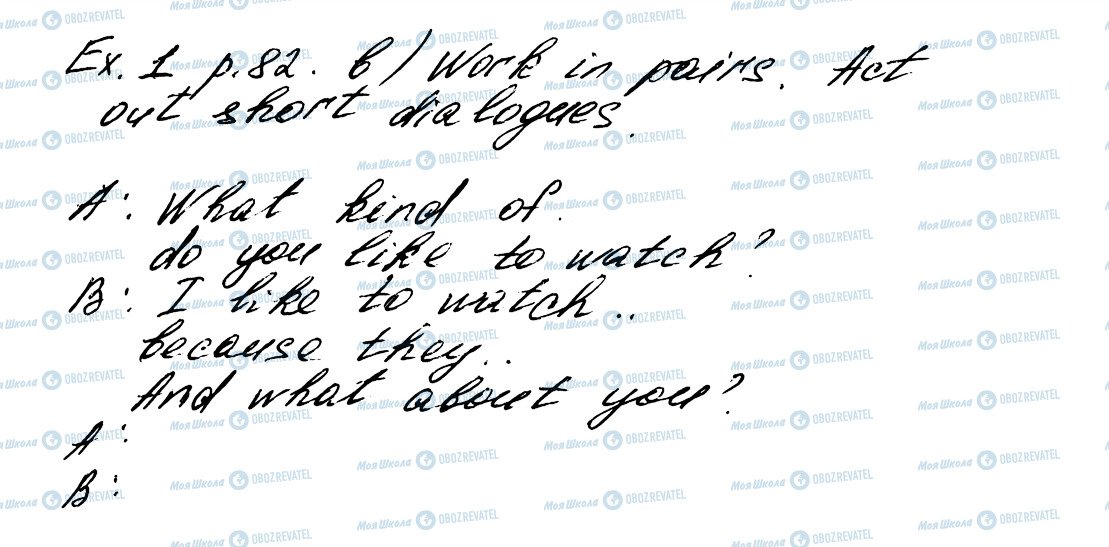 Ex. 1 p.82. b) Work in pairs. Act
out short dialogues.
A: What kind of.
do you like to watch?
B: I like to watch..
because they..
And what about you?
A:
B: